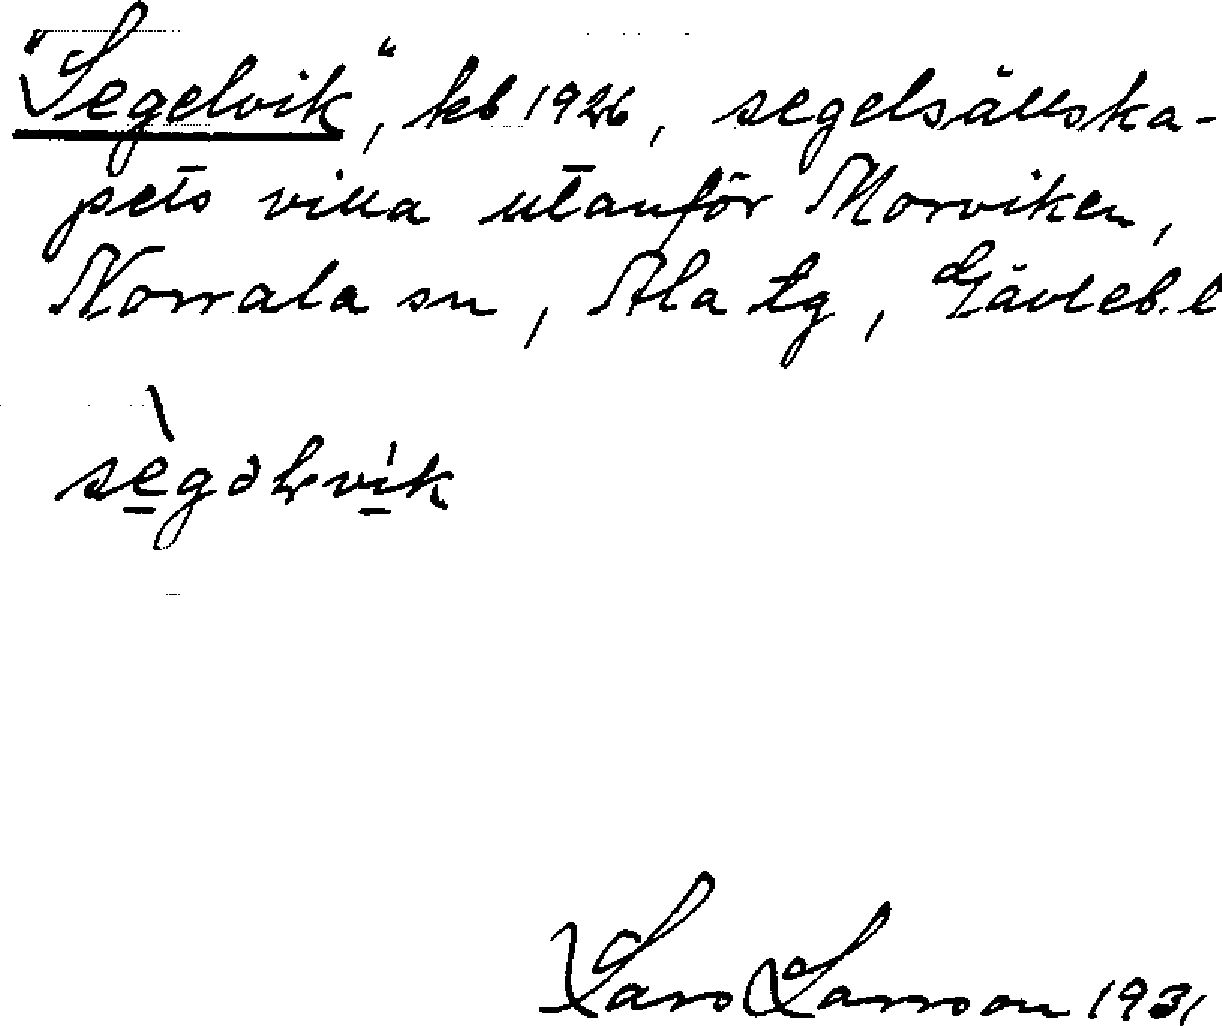 "Segelvik", kb 1926, segelsällska-
pets villa utanför Morviken,
Norrala sn, Ala tg, Gävleb. l
sègəlvík
Lars Larsson 1931